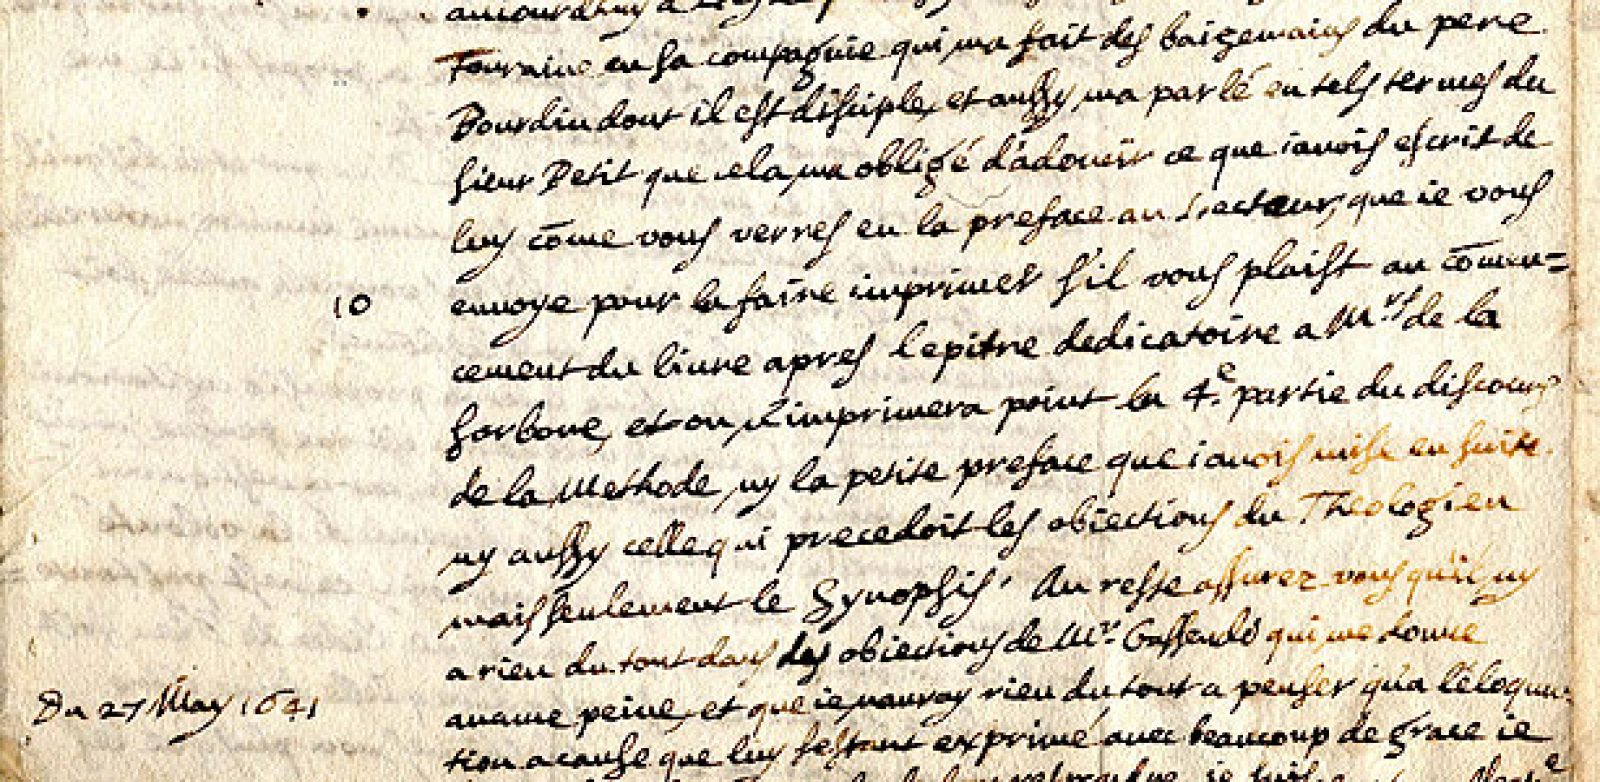 aujourdhuy a
Touraine en sa compagnie qui m'a fait des baizemains du pere
Bourdin dont il est disciple, et aussy m'a parlé en tels termes du
sieur Petit que cela m'a obligé d'adoucir ce que i'auois escrit de
luy cōme vous verres en la preface au Lecteur, que ie vous
10 enuoye pour la faire imprimer s'il vous plaist au cōmen=
cement du liure apres l'epitre dedicatoire a Mrs de la
sorbone, et on n'imprimera point la 4e. partie du discours
de la Methode, ny la petite preface que i'auois mise en suite
ny aussy celle qui precedoit les obiections du Theologien
mais seulement le Synopsis. Au reste assurez vous qu'il ny
a rien du tout dans les obiections de Mr. Gassendi qui me donne
Du 27 May 1641
aucune peine, et que ie n'auray rien du tout a penser qu'a l'eloqu
tion a cause que luy s'estant exprimé auec beaucoup de grace ie